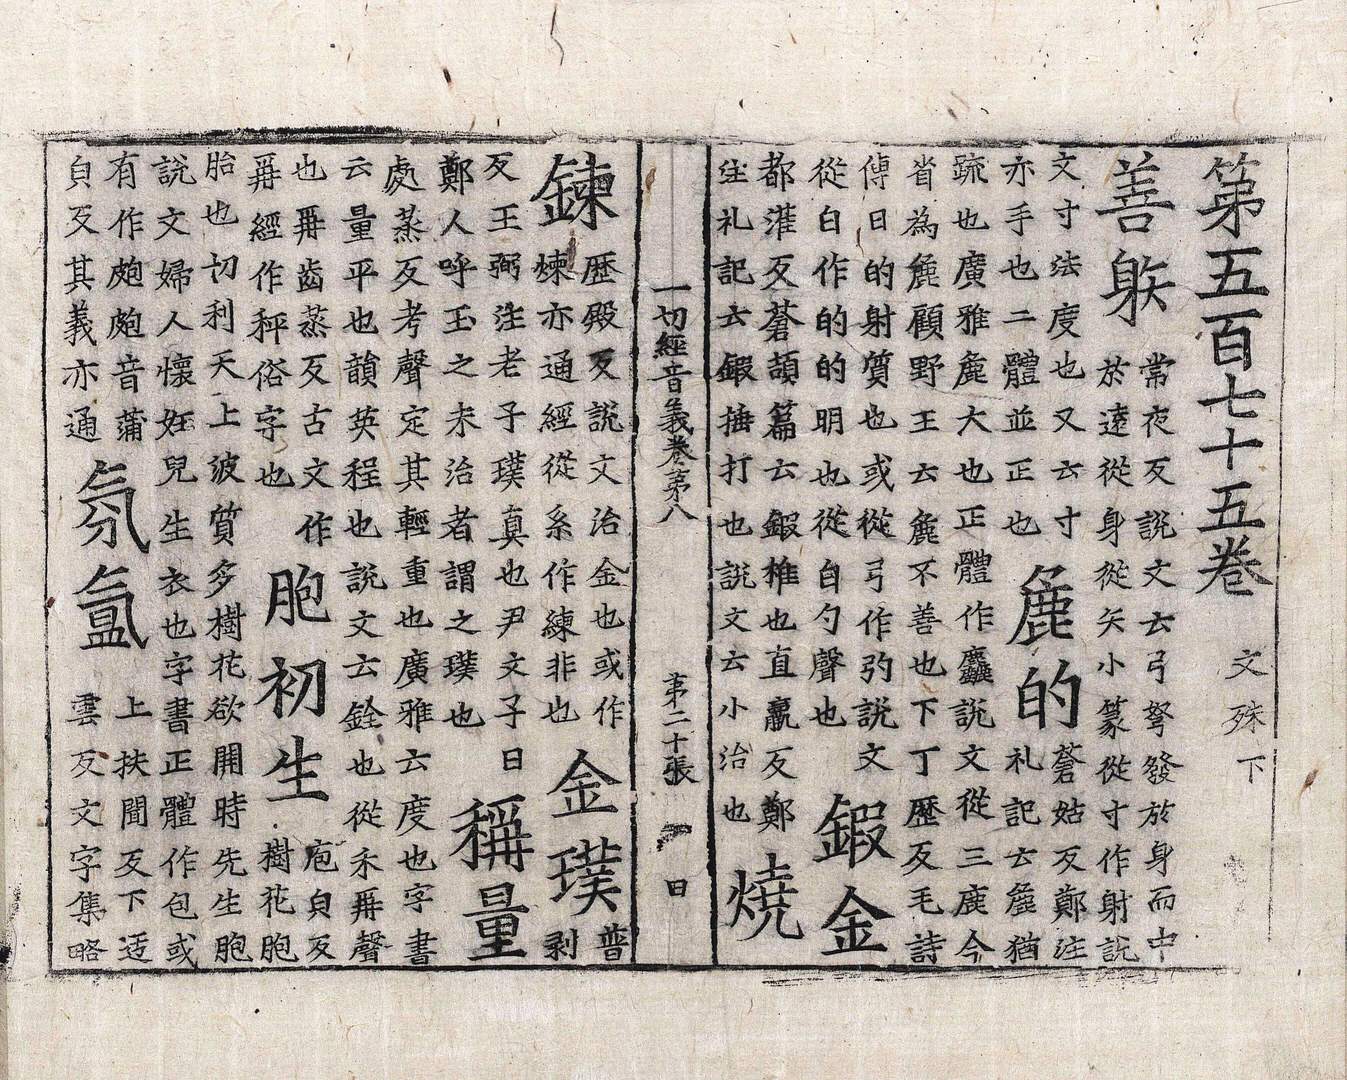 第五百七十五卷 文殊下
善䠶 常夜反說文云弓弩發於身而中
於遠從身從矢小篆從寸作射說
文寸法度也又云寸
亦手也二體並正也
麁的 蒼姑反鄭注
礼記云麁猶
疏也廣雅麁大也正體作麤說文從三鹿今
省為麁顧野王云麁不善也下丁歷反毛詩
傳曰的射質也或從弓作𢏇說文
從白作的的明也從白勺聲也
鍛金
都灌反蒼頡篇云鍛椎也直羸反鄭
注礼記云鍛捶打也說文云小冶也
燒
一切經音義卷第八 第二十張 曰
鍊 歷殿反說文治金也或作
煉亦通經從糸作練非也
金璞 普
剥
反王弼注老子璞真也尹文子曰
鄭人呼玉之未治者謂之璞也
稱量
處蒸反考聲定其輕重也廣雅云度也字書
云量平也韻英程也說文云銓也從禾爯聲
也爯齒蒸反古文作
爯經作秤俗字也
胞初生 庖皃反
樹花胞
胎也忉利天上波質多樹花欲開時先生胞
說文婦人懷妊兒生衣也字書正體作包或
有作皰皰音蒲
皃反其義亦通
氛氳 上扶聞反下迂
雲反文字集略